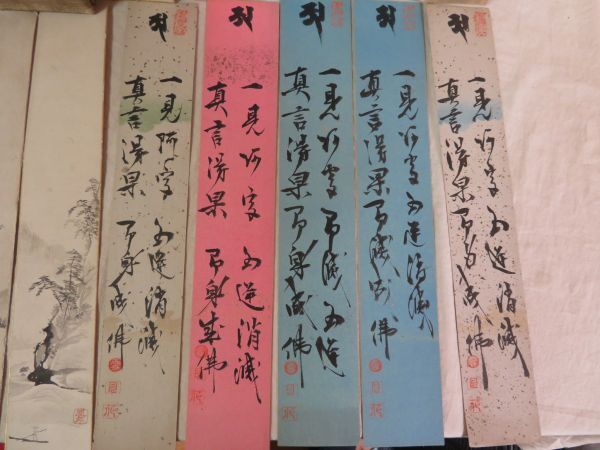 𑖀
一見阿字五逆消滅
真言得果即身成佛
𑖀
一見阿字五逆消滅
真言得果即身成佛
𑖀
一見阿字即滅五逆
真言得果即身成佛
𑖀
一見阿字五逆消滅
真言得果即身成佛
𑖀
一見阿字五逆消滅
真言得果即身成佛